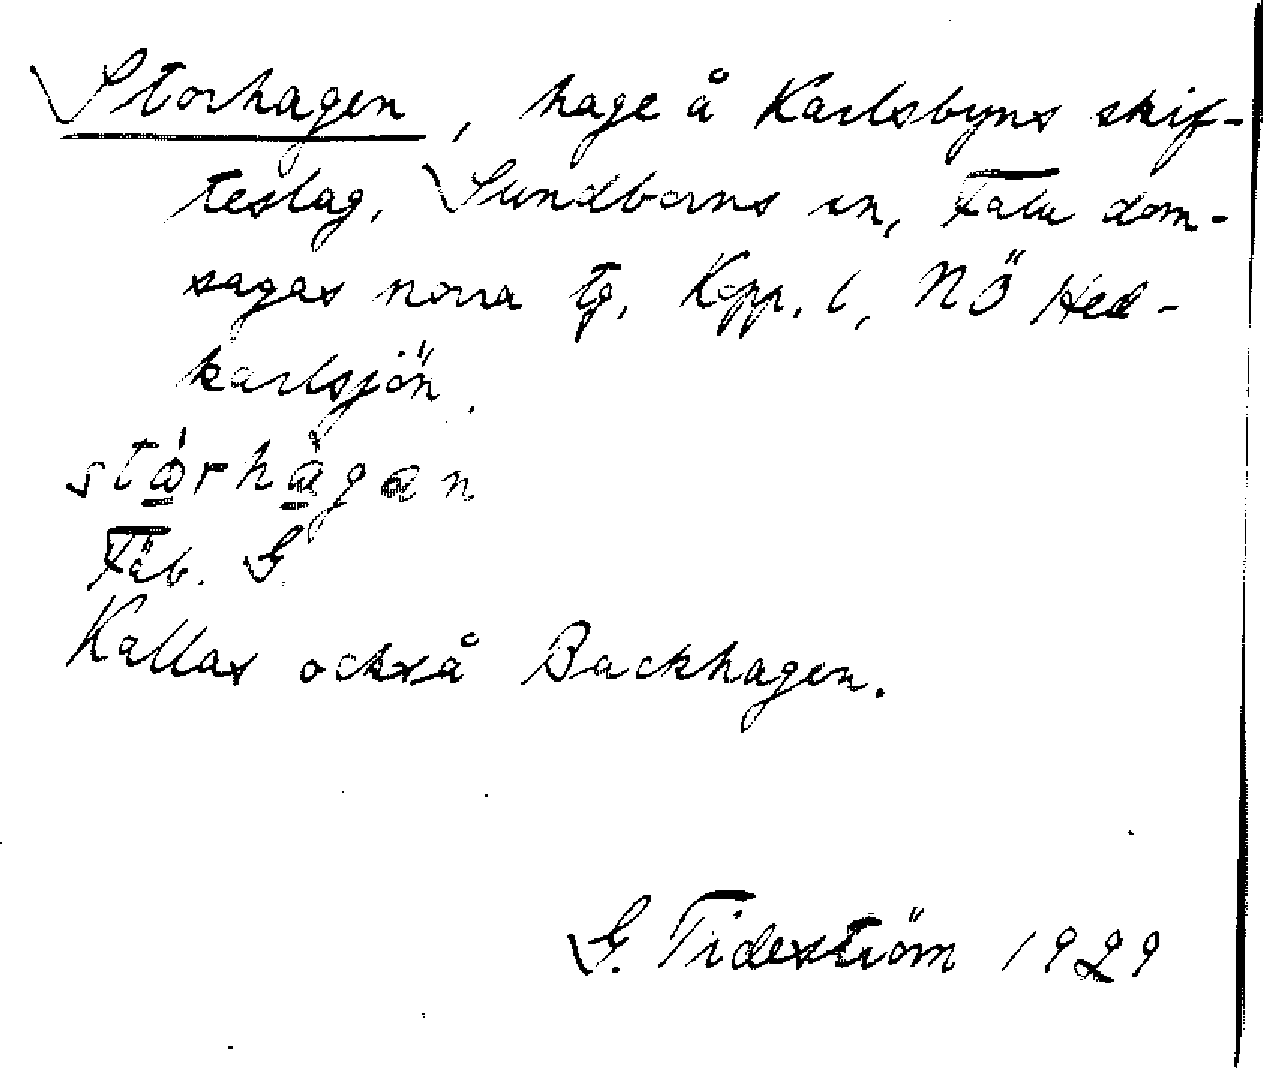 Storhagen, hage å Karlsbyns skif-
teslag, Sundborns sn, Falu dom-
sagas norra tg, Kopp. l, NÖ Hed-
karlsjön.
Fäb. G.
Kallas också Backhagen.
G. Tideström 1929